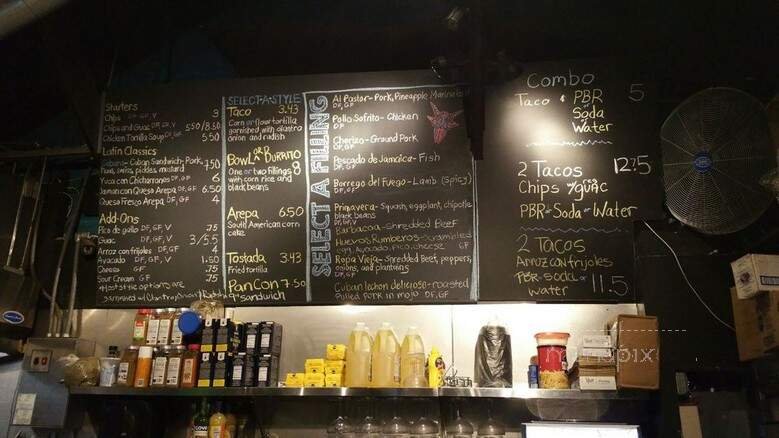 Starters
Chips DF, GF, V 3
Chips and Guac DF, GF 5.50/8.50
Chicken Tortilla Soup DF, GF 5.50
Latin Classics
Cubano- Cuban Sandwich- Pork, 7.50
Ham, Swiss, pickles, mustard
Yuca con Chicharrones DF, GF 6
Jamon con Queso Arepa DF, GF 6.50
Queso Fresco Arepa DF, GF 4
Add-Ons
Pico de gallo DF, GF, V .75
Guac DF, GF, V 3/5.5
Arroz con frijoles DF, GF 4
Avocado DF, GF, V 1.50
Cheese GF .75
Sour Cream GF .75
SELECT-A-STYLE
Taco 3.43
Corn or flour tortilla
garnished with cilantro
onion and radish
Bowl or Burrito
One or two fillings 8
with corn rice and
black beans
Arepa 6.50
South American corn
cake
Tostada 3.43
Fried tortilla
Pan Con 7.50
9" sandwich
SELECT A FILLING
Al Pastor- Pork, Pineapple Marinade
DF, GF
Pollo Sofrito- Chicken
DF, GF
Chorizo- Ground Pork
DF, GF
Pescado de Jamaica- Fish
DF, GF
Borrego del Fuego- Lamb (spicy)
DF, GF
Primavera- Squash, eggplant, chipotle
black beans
DF, GF, V
Barbacoa- Shredded Beef
Huevos Rumberos- Scrambled
egg, Avocado, Pico, cheese GF
Ropa Vieja- Shredded Beef, peppers,
onions, and plantains
DF, GF
Cuban lechon delicioso- roasted
pulled pork in mojo DF, GF
Combo
Taco & PBR 5
Soda
Water
2 Tacos 12.75
Chips w/ guac
PBR or Soda or Water
2 Tacos
Arroz con frijoles
PBR-soda or 11.5
water